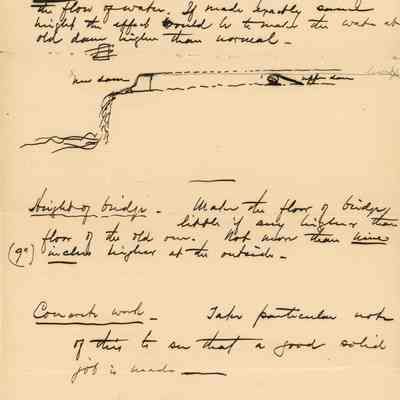 the flow of water. If made exactly same
height the effect would be to make the water at
old dam higher than normal -
new dam
upper dam
Height of bridge - Make the floor of bridge
little if any higher than
floor of the old one. Not more than nine
(9") inches higher at the outside -
Concrete work - Take particular note
of this to see that a good solid
job is made -